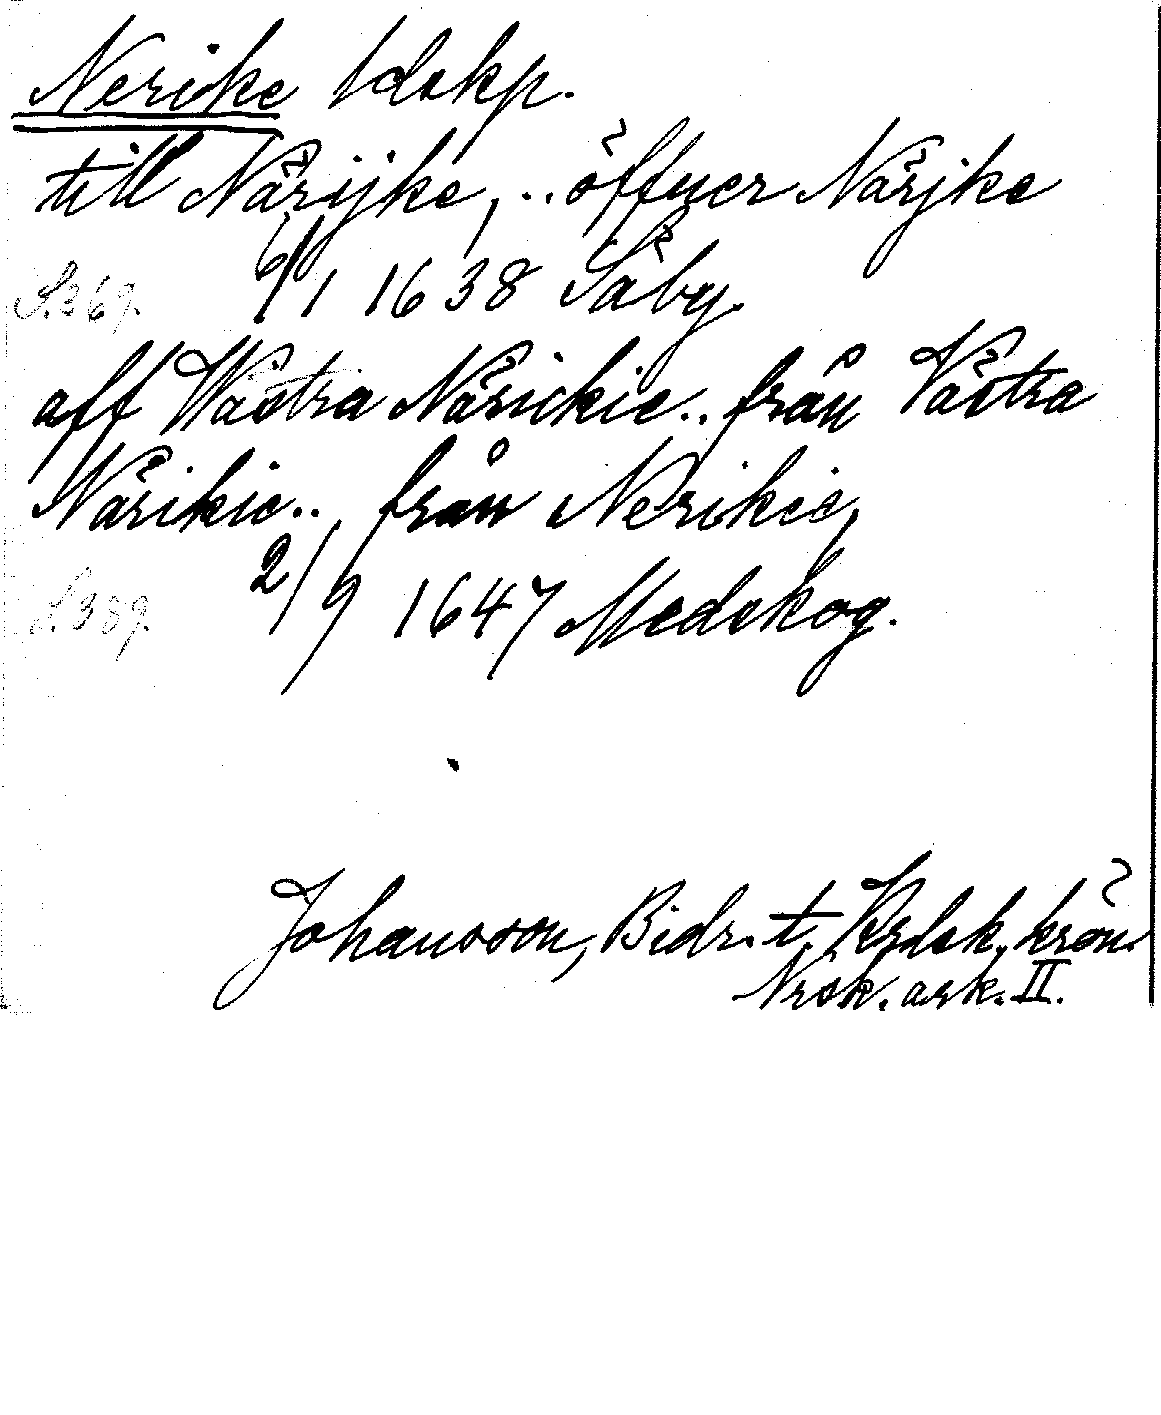 Nerike ldskp.
till Närijke, .. öffuer Närjke
S.369. 6/1 1638 Säby.
aff Wästra Närickie.. från Västra
Närikie.., från Nerikie,
S.389. 2/9 1647 Medskog.
Johansson, Bidr. t. Krlsk. krön.
Nrsk. ark. II.